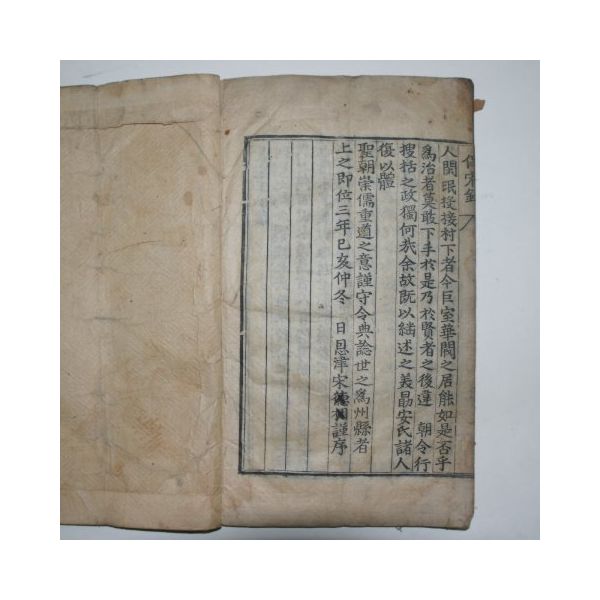 人関眼後接村下者今巨室華閥之居能如是否乎
為治者莫敢下手於是乃於賢者之後違 朝令行
搜括之政獨何哉余故既以繼述之義勗安氏諸人
復以體
聖朝崇儒重道之意謹守令典諗世之為州縣者
上之即位三年己亥仲冬 日恩津宋德相謹序